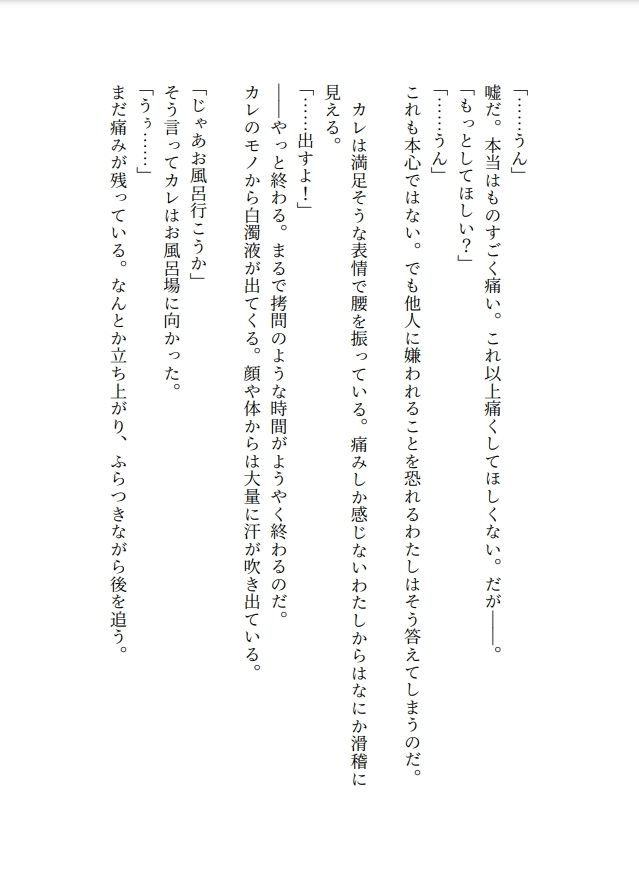 「……うん」
嘘だ。本当はものすごく痛い。これ以上痛くしてほしくない。だが――。
「もっとしてほしい？」
「……うん」
これも本心ではない。でも他人に嫌われることを恐れるわたしはそう答えてしまうのだ。
カレは満足そうな表情で腰を振っている。痛みしか感じないわたしからはなにか滑稽に
見える。
「……出すよ！」
――やっと終わる。まるで拷問のような時間がようやく終わるのだ。
カレのモノから白濁液が出てくる。顔や体からは大量に汗が吹き出ている。
「じゃあお風呂行こうか」
そう言ってカレはお風呂場に向かった。
「うぅ……」
まだ痛みが残っている。なんとか立ち上がり、ふらつきながら後を追う。